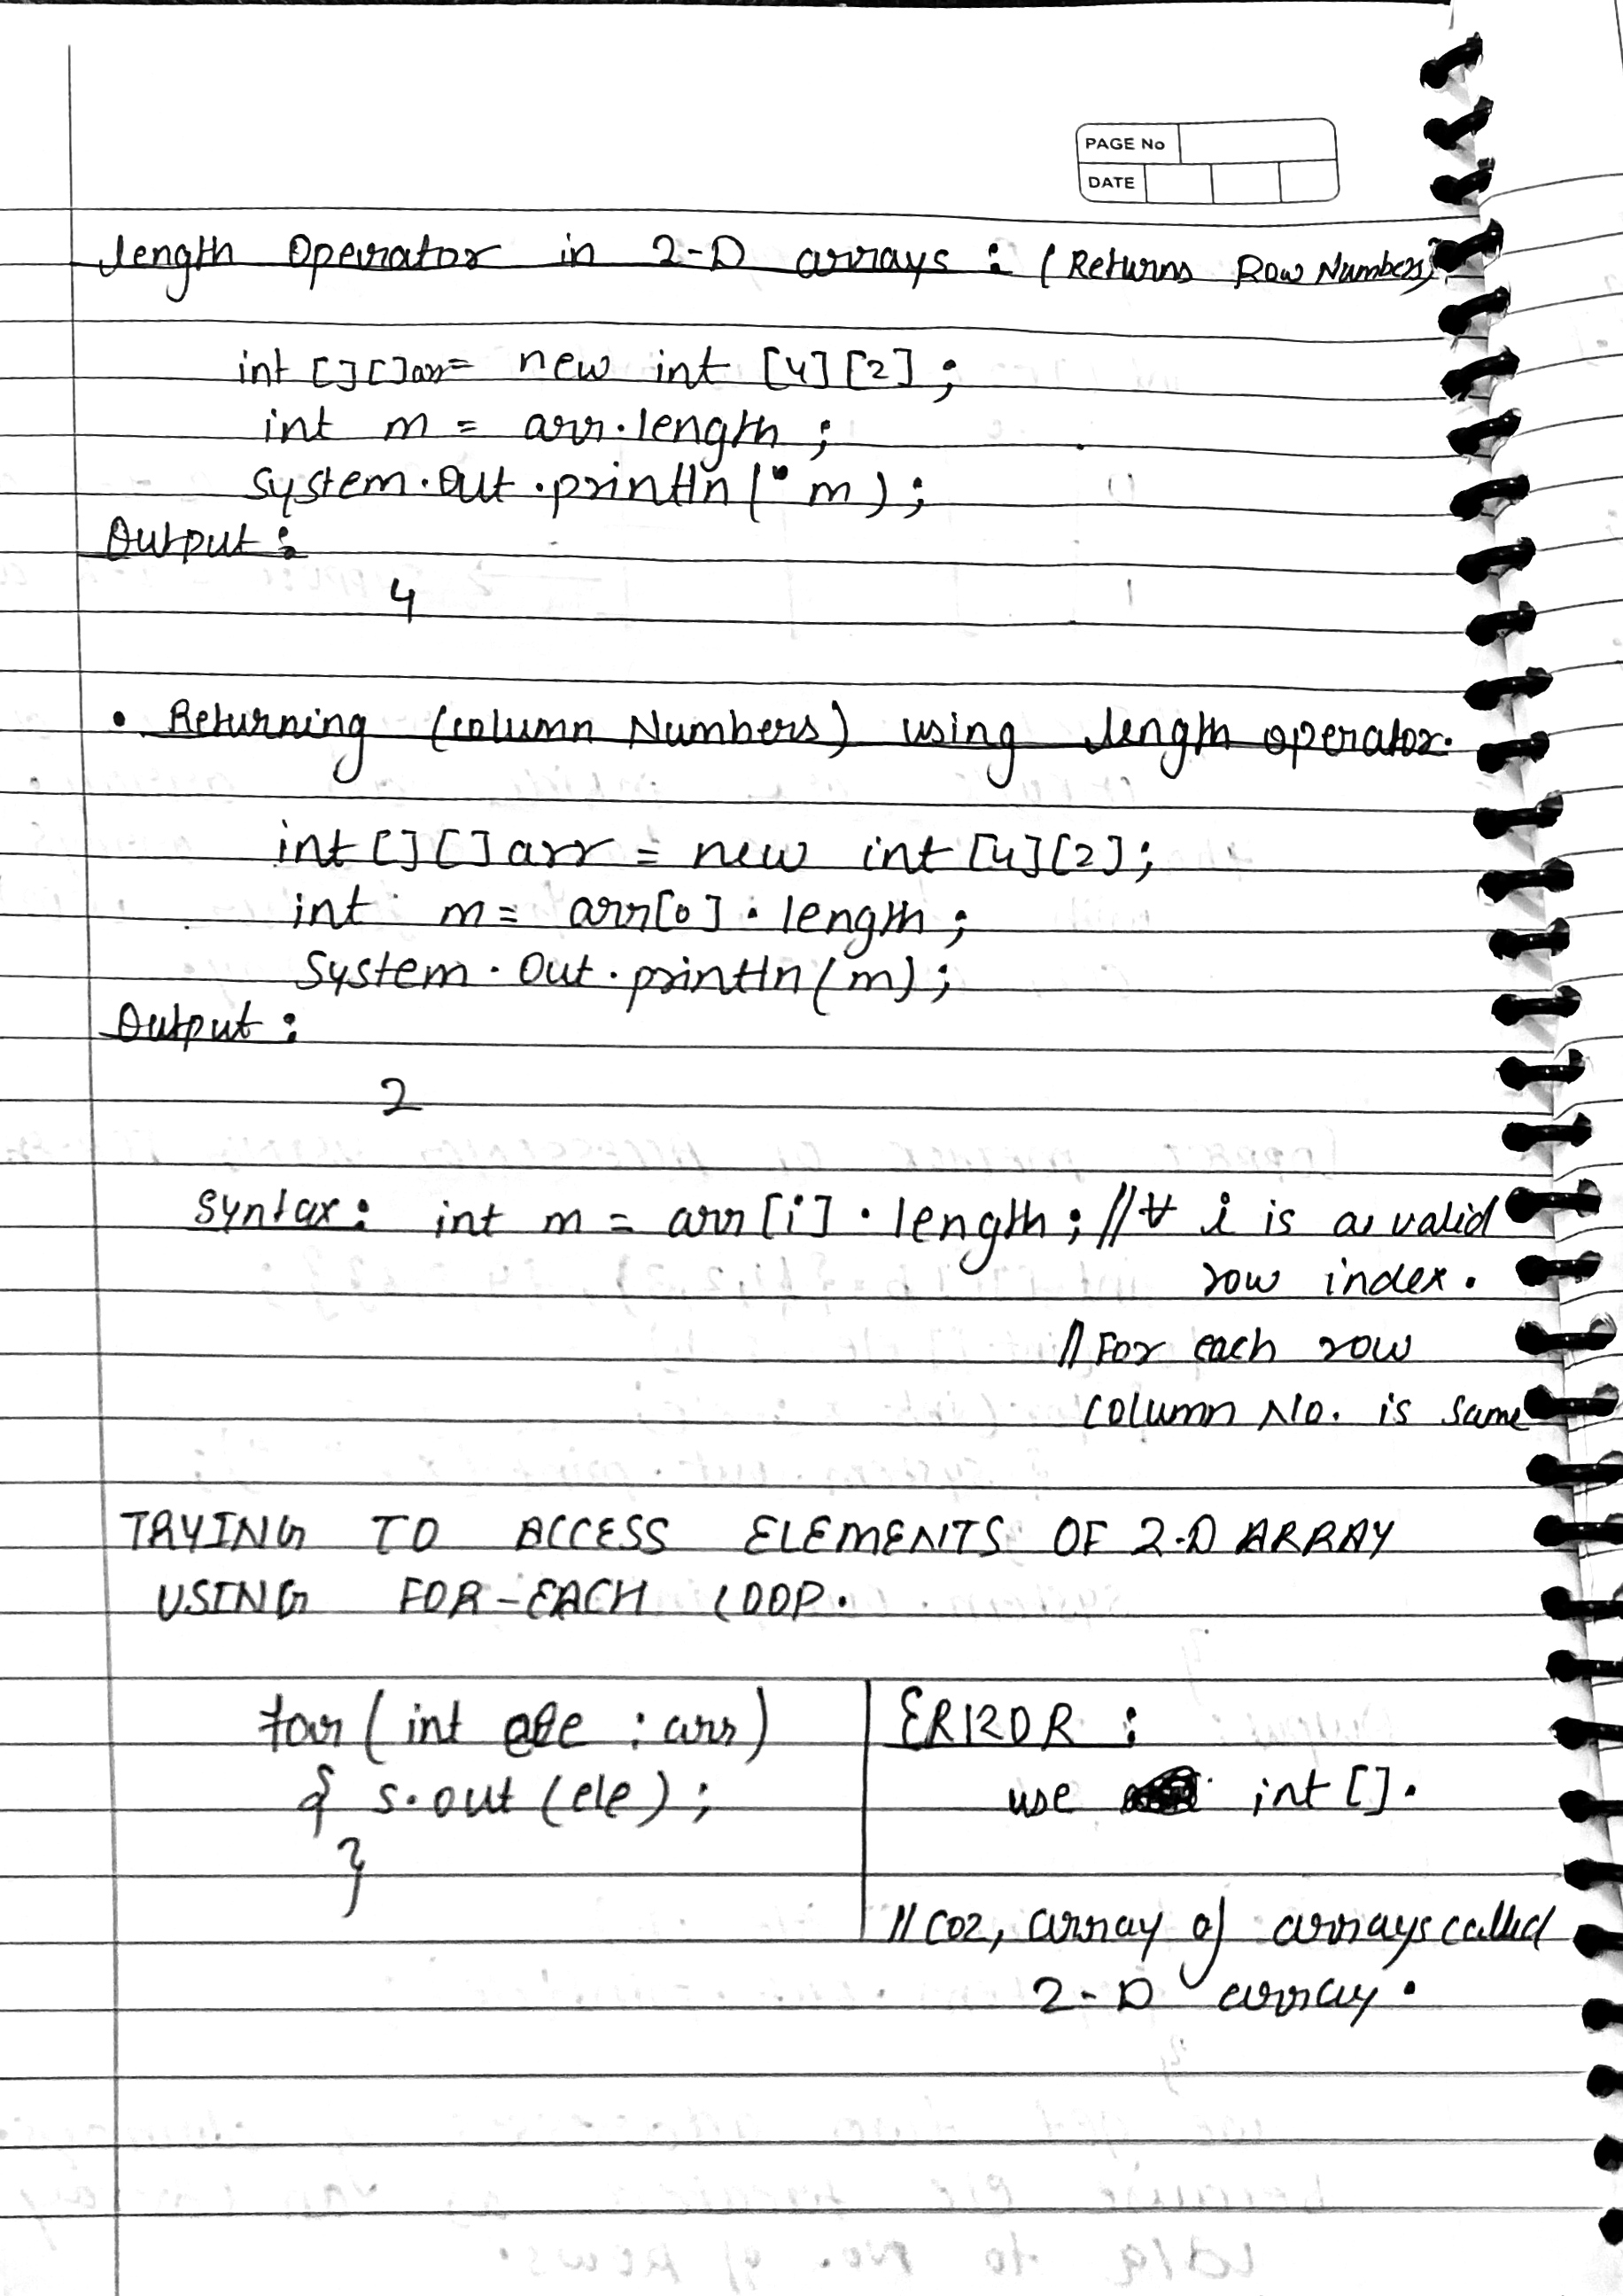 PAGE No
DATE
length Operator in 2-D arrays : (Returns Row Numbers)
int [][]arr= new int [4][2];
int m = arr.length;
System.out.println( m );
Output :
4
• Returning (column Numbers) using length operator.
int[][]arr = new int[4][2];
int m = arr[0].length;
System.out.println(m);
Output :
2
Syntax : int m = arr[i].length; //∀ i is a valid
row index.
// For each row
column No. is same
TRYING TO ACCESS ELEMENTS OF 2-D ARRAY
USING FOR-EACH LOOP.
for( int ele : arr)
{ s.out (ele);
}
ERROR :
use int[].
// Coz, array of arrays called
2-D array.